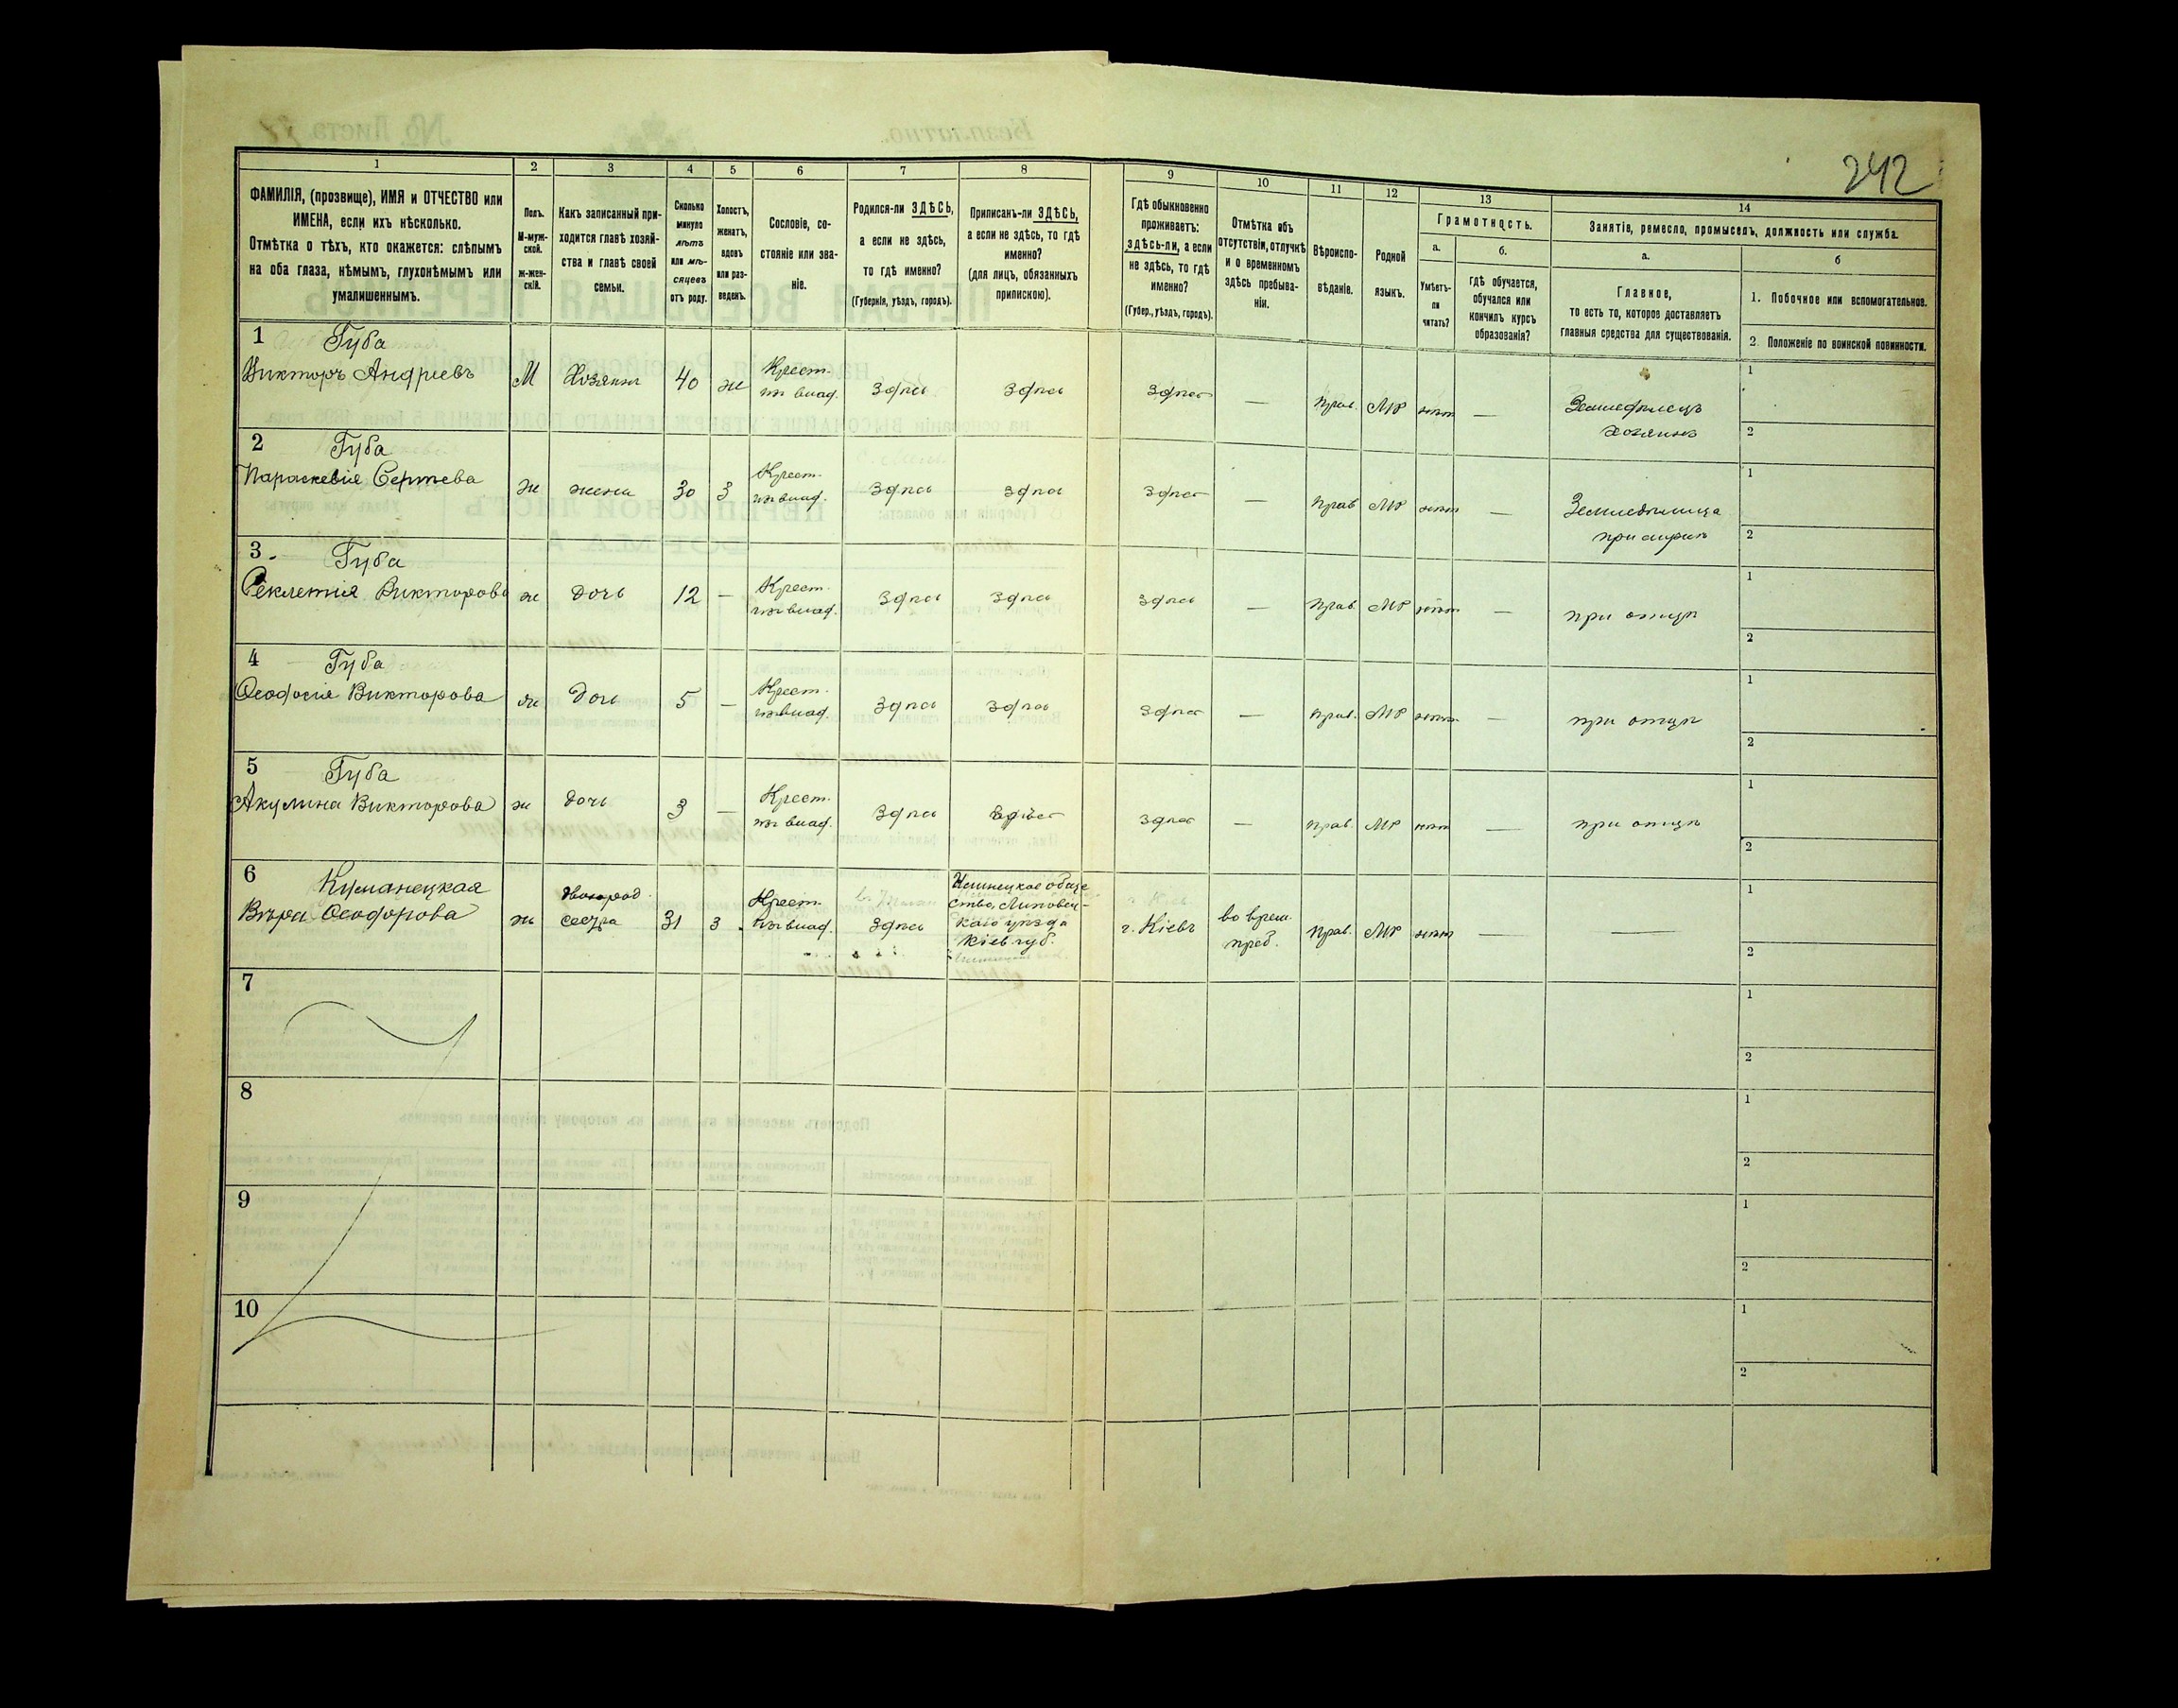 242
1
2
3
4
5
6
7
8
9
10
11
12
13
14
ФАМИЛІЯ, (прозвище), ИМЯ и ОТЧЕСТВО или
ИМЕНА, если ихъ нѣсколько.
Отмѣтка о тѣхъ, кто окажется: слѣпымъ
на оба глаза, нѣмымъ, глухонѣмымъ или
умалишеннымъ.
Полъ.
М-муж-
ской.
ж-жен-
скій.
Какъ записанный при-
ходится главѣ хозяй-
ства и главѣ своей
семьи.
Сколько
минуло
лѣтъ
или мѣ-
сяцевъ
отъ роду.
Холостъ,
женатъ,
вдовъ
или раз-
веденъ.
Сословіе, со-
стояніе или зва-
ніе.
Родился-ли ЗДѢСЬ,
а если не здѣсь,
то гдѣ именно?
(Губернія, уѣздъ, городъ).
Приписанъ-ли ЗДѢСЬ,
а если не здѣсь, то гдѣ
именно?
(для лицъ, обязанныхъ
припискою).
Гдѣ обыкновенно
проживаетъ:
здѣсь-ли, а если
не здѣсь, то гдѣ
именно?
(Губер., уѣздъ, городъ).
Отмѣтка объ
отсутствіи, отлучкѣ
и о временномъ
здѣсь пребыва-
ніи.
Вѣроиспо-
вѣданіе.
Родной
языкъ.
Грамотность.
а.
Умѣетъ-
ли
читать?
б.
гдѣ обучается,
обучался или
кончилъ курсъ
образованія?
Занятіе, ремесло, промыселъ, должность или служба.
а.
Главное,
то есть то, которое доставляетъ
главныя средства для существованія.
б
1. Побочное или вспомогательное.
2. Положеніе по воинской повинности.
1 Губа
Викторъ Андреевъ М Хозяинъ 40 ж Крест. изъ влад. Здѣсь Здѣсь Здѣсь — Прав. МР нѣтъ — Земледѣлецъ 1
хозяинъ 2
2 Губа
Параскевія Сергѣева ж жена 30 з Крест. изъ влад. Здѣсь Здѣсь Здѣсь — Прав МР нѣтъ — Земледѣлица 1
при мужѣ 2
3 Губа
Феклетія Викторова ж дочь 12 — Крест. изъ влад. Здѣсь Здѣсь Здѣсь — Прав. МР нѣтъ — при отцѣ 1
2
4 Губа
Ѳеодосія Викторова ж дочь 5 — Крест. изъ влад. Здѣсь Здѣсь Здѣсь — Прав. МР нѣтъ — при отцѣ 1
2
5 Губа
Акулина Викторова ж дочь 3 — Крест. изъ влад. Здѣсь Здѣсь Здѣсь — Прав. МР нѣтъ — при отцѣ 1
2
6 Куманецкая
Вѣра Ѳеодорова ж двоюрод. сестра 31 з Крест. изъ влад. Здѣсь
ство, Липовец-
каго уѣзда
Кіев губ.
г. Кіевъ во врем. преб. Прав. МР нѣтъ — — 1
2
7 1
2
8 1
2
9 1
2
10 1
2